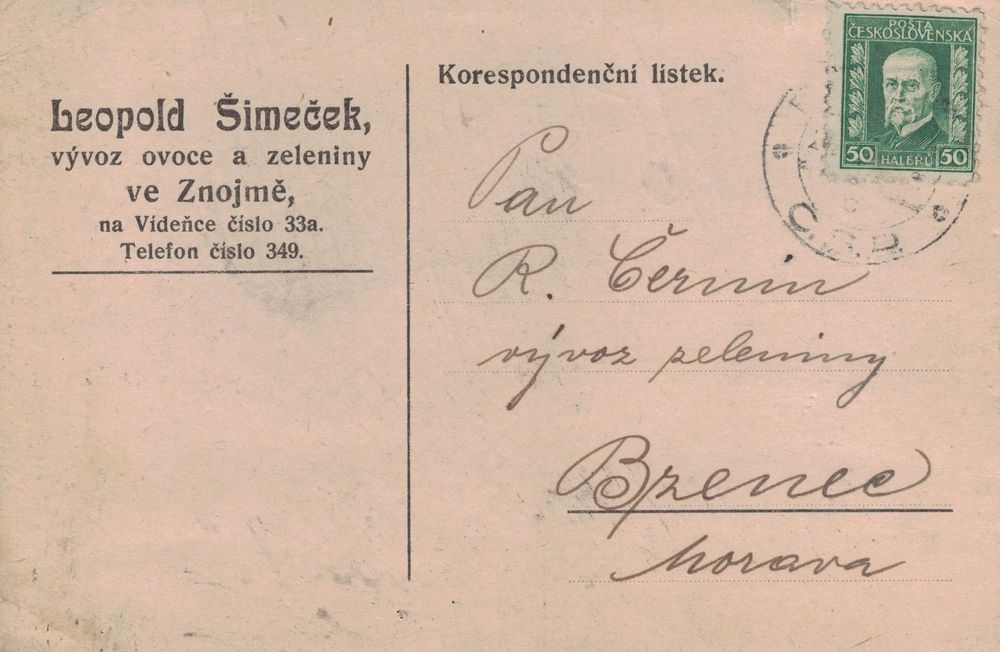 Leopold Šimeček,
vývoz ovoce a zeleniny
ve Znojmě,
na Vídeňce číslo 33a.
Telefon číslo 349.
Korespondenční lístek.
POŠTA
ČESKOSLOVENSKÁ
50 HALÉŘŮ 50
Pan
R. Černín
vývoz zeleniny
Bzenec
Morava